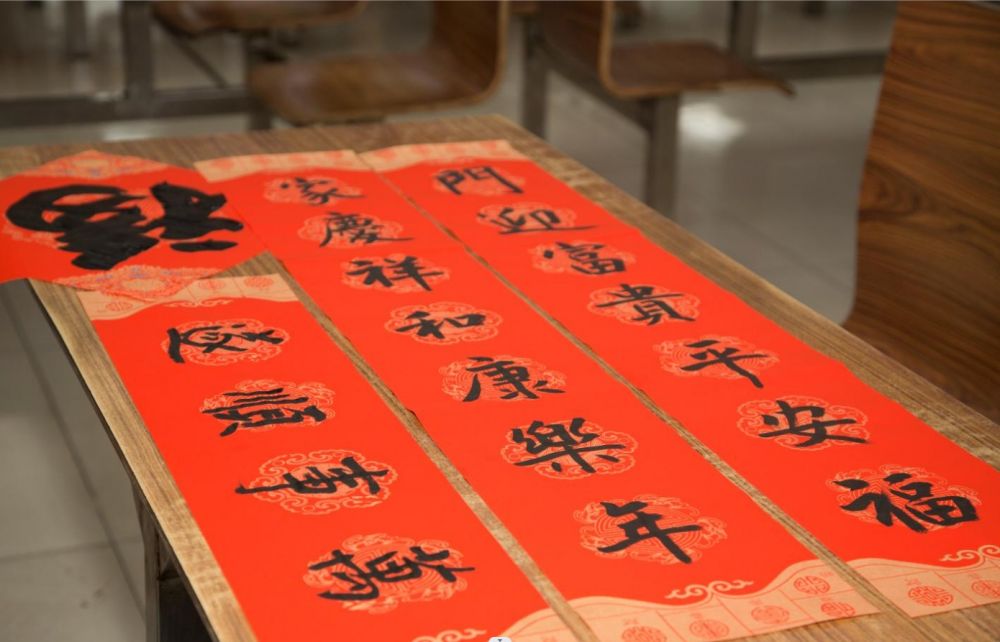 門迎富貴平安福
家慶祥和康樂年
萬事
福